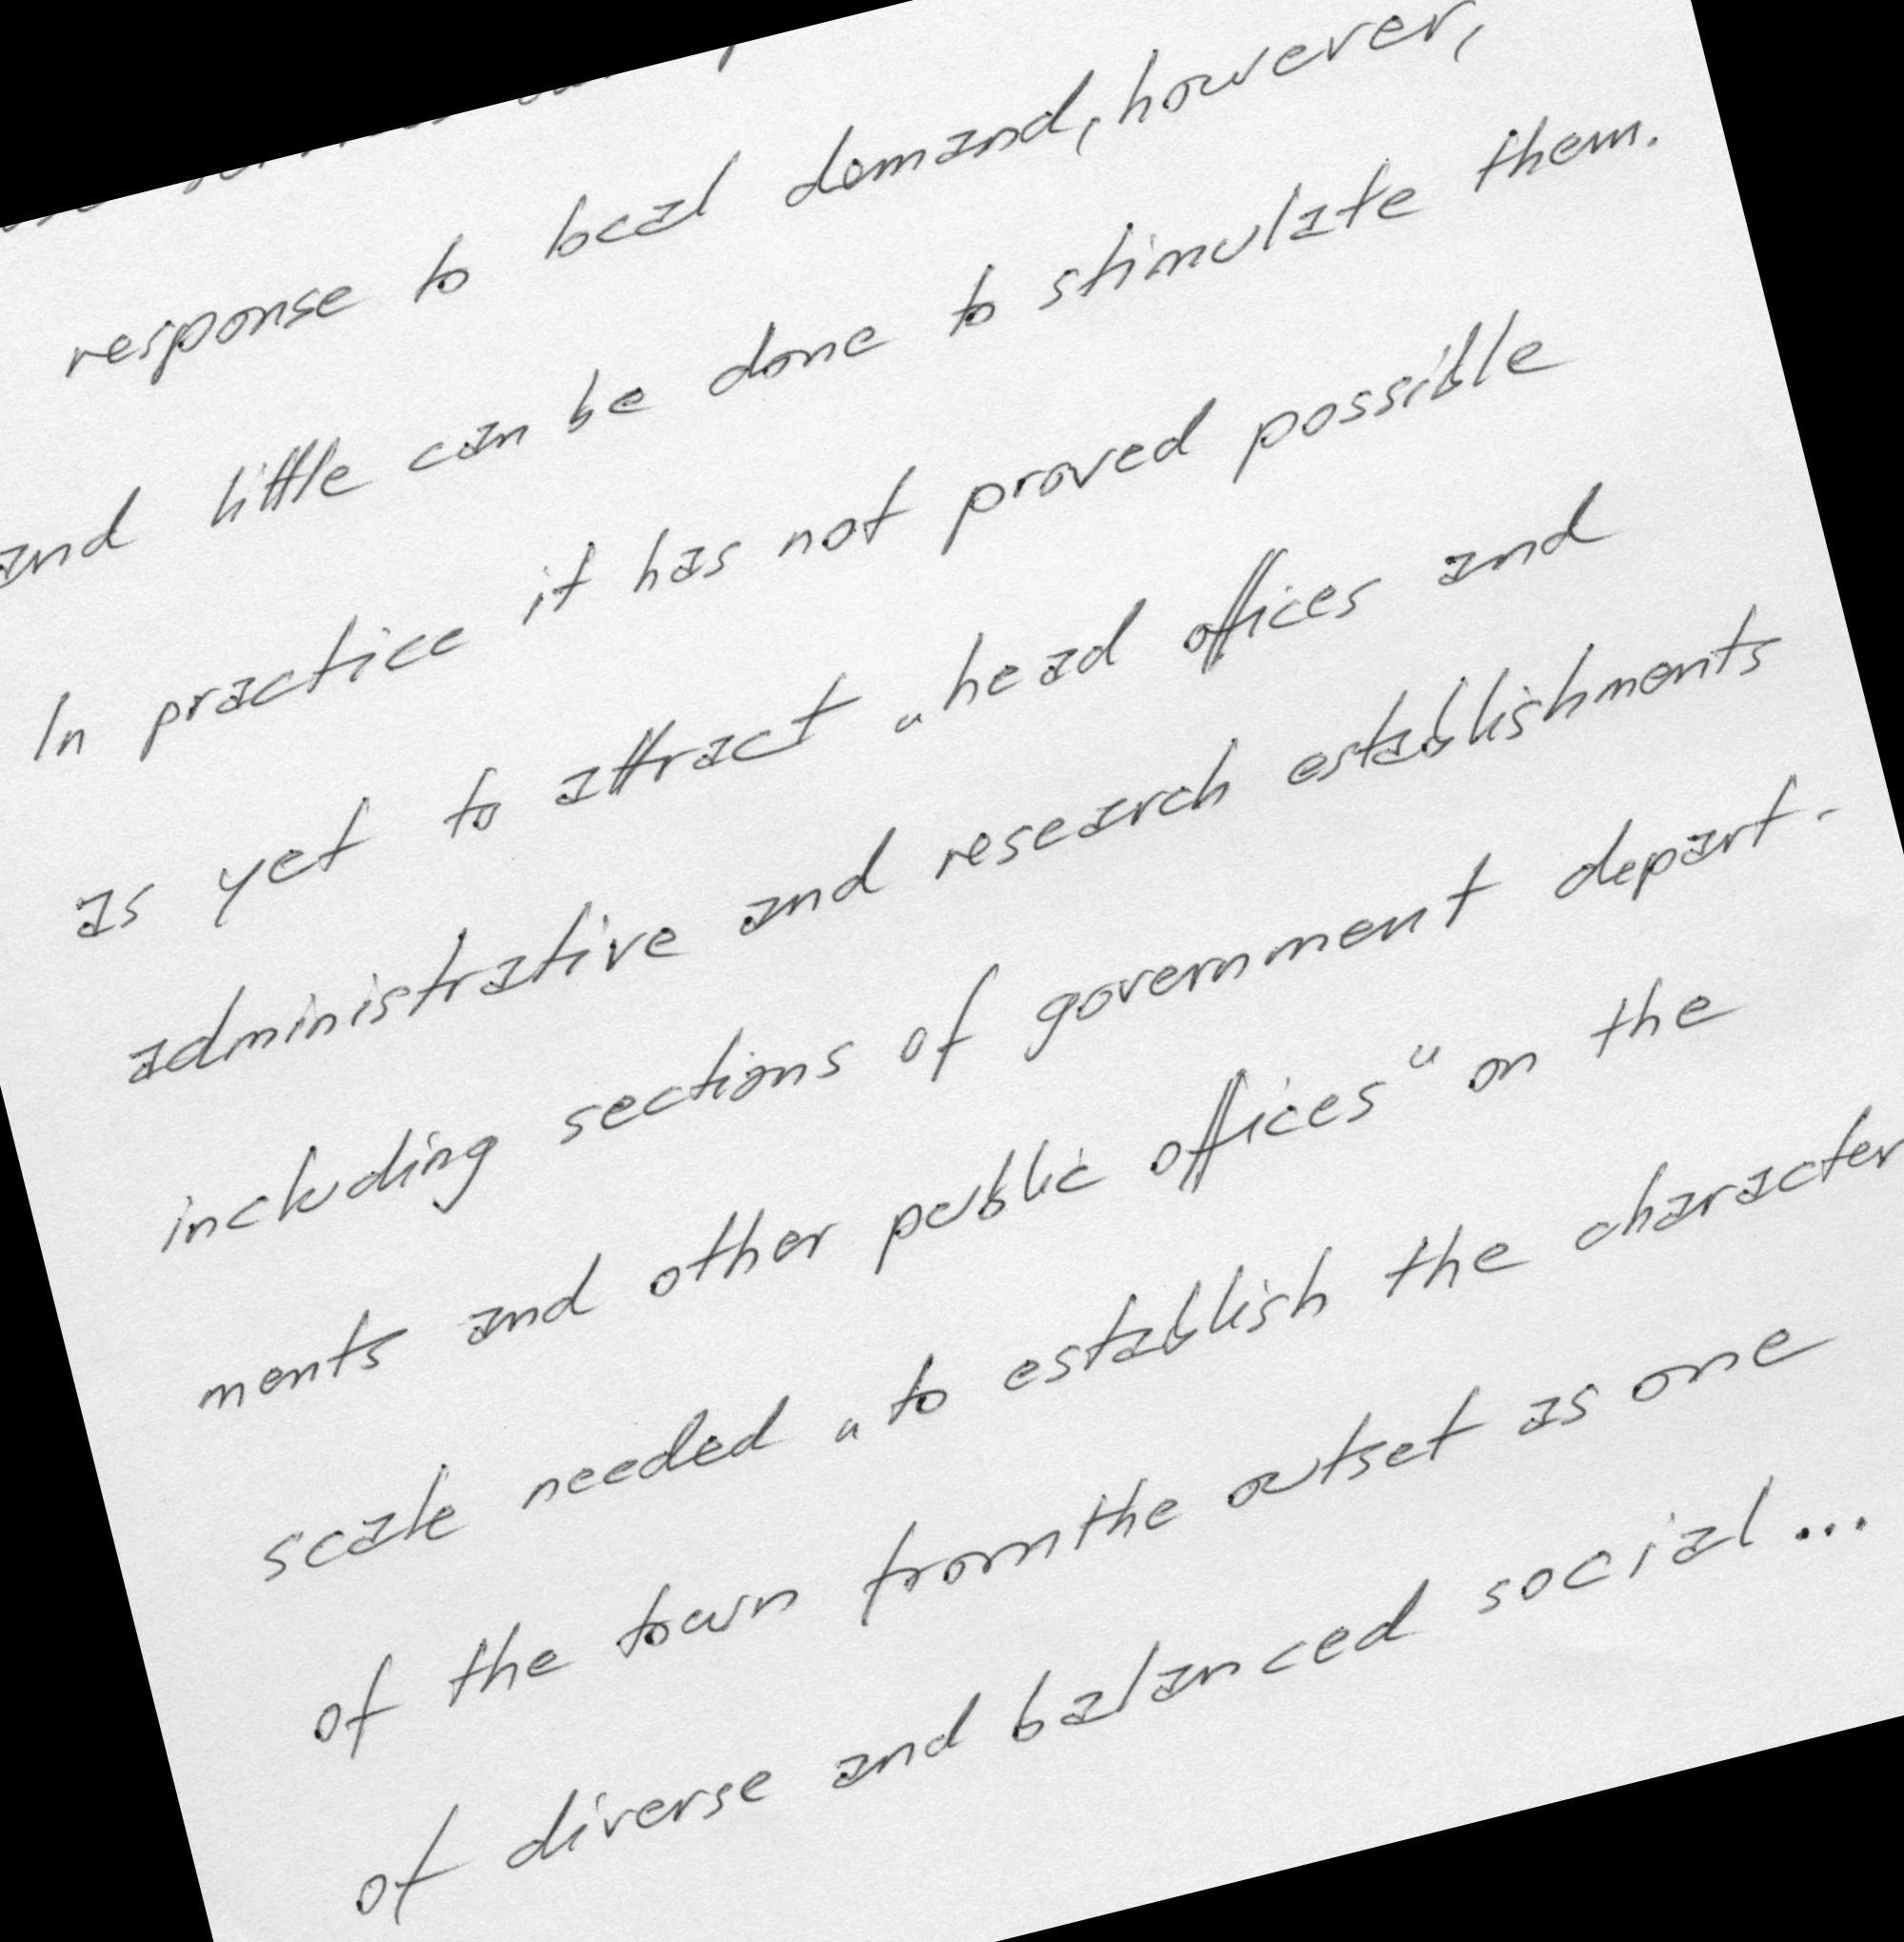 response to local demand, however,
and little can be done to stimulate them.
In practice it has not proved possible
as yet to attract „head offices and
administrative and research establishments
including sections of government depart-
ments and other public offices“ on the
scale needed „to establish the character
of the town from the outset as one
of diverse and balanced social ...